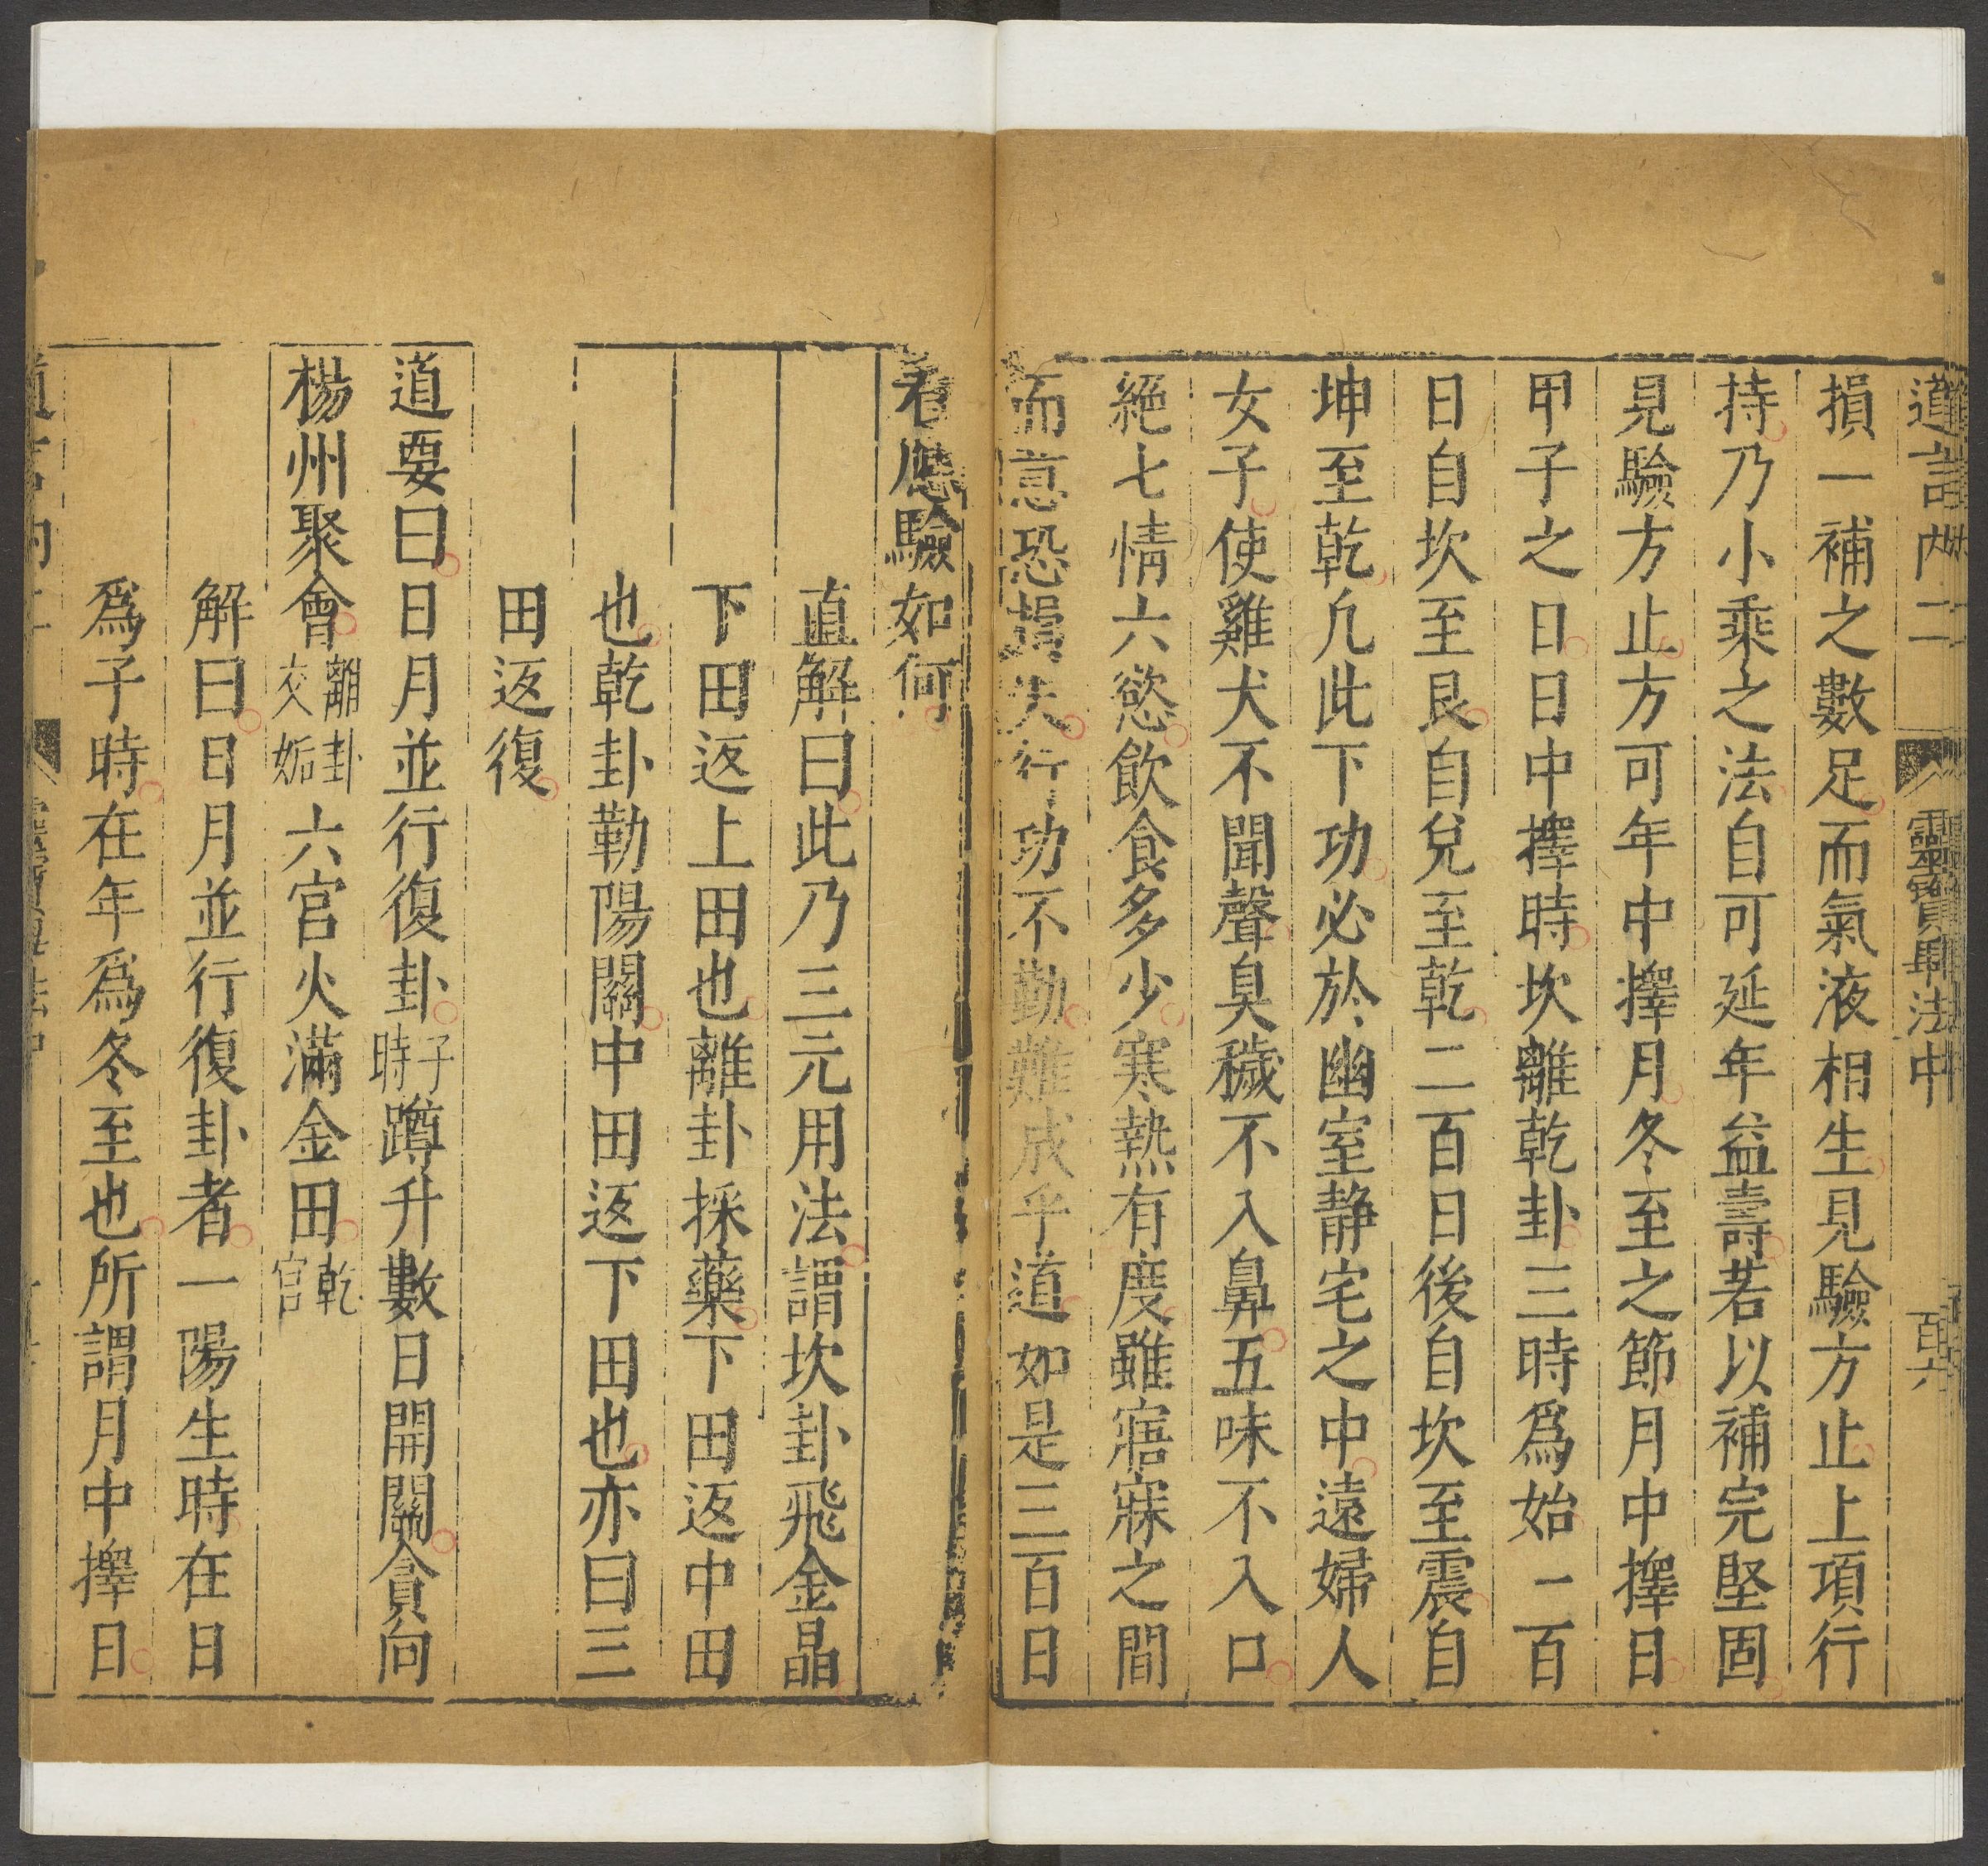 道言内二 靈寶畢法中 百六
損一補之數足而氣液相生見驗方止上項行
持乃小乘之法自可延年益壽若以補完堅固
見驗方止方可年中擇月冬至之節月中擇日
甲子之日日中擇時坎離乾卦三時爲始一百
日自坎至艮自兌至乾二百日後自坎至震自
坤至乾凢此下功必於幽室静宅之中遠婦人
女子使雞犬不聞聲臭穢不入鼻五味不入口
絕七情六慾飲食多少寒熱有度雖寤寐之間
而意恐損失行功不勤難成乎道如是三百日
看應驗如何
直解曰此乃三元用法謂坎卦飛金晶
下田返上田也離卦採藥下田返中田
也乾卦勒陽關中田返下田也亦曰三
田返復
道要曰日月並行復卦子時蹲升數日開關貪向
楊州聚會離卦交姤六宮火滿金田乾宮
解曰日月並行復卦者一陽生時在日
爲子時在年爲冬至也所謂月中擇日